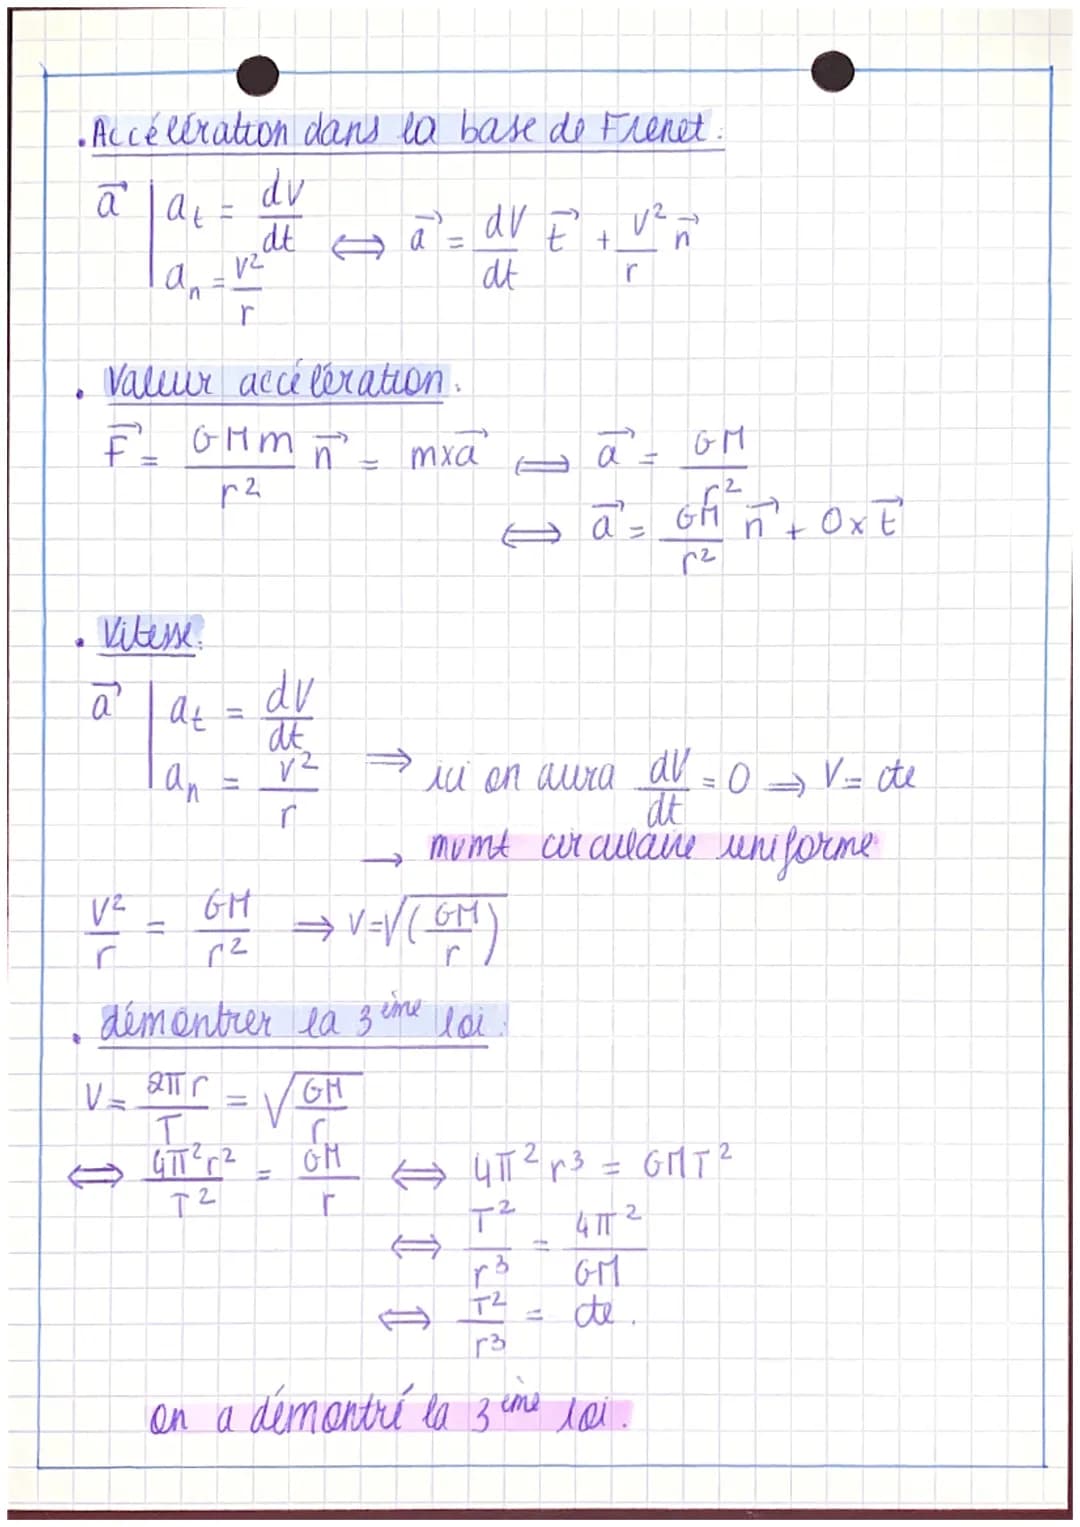 . Accélération dans la base de Frenet :
a⃗ | a_t = dv/dt ⟺ a⃗ = dV/dt t⃗ + v²/r n⃗
a_n = v²/r
. Valeur accélération.
F⃗ = GMm/r² n⃗ = mxa⃗ ⟺ a⃗ = GM/r²
⟺ a⃗ = GM/r² n⃗ + 0xt⃗
. Vitesse.
a⃗ | a_t = dv/dt
a_n = v²/r ⟹ ici on aura dV/dt = 0 ⟹ V = cte
→ mvmt circulaire uniforme
V²/r = GM/r² ⟹ V=√(GM/r)
. démontrer la 3ème loi.
V = 2πr/T = √GM/r
⟺ 4π²r²/T² = GM/r ⟺ 4π²r³ = GMT²
⟺ T²/r³ = 4π²/GM
⟺ T²/r³ = cte.
on a démontré la 3ème loi.